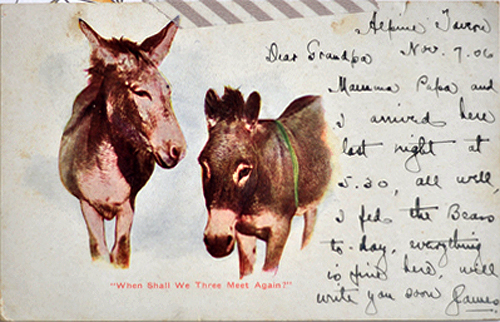 Alpine Tavern
Nov. 7. 06
Dear Grandpa
Mamma Papa and
I arrived here
last night at
5.30, all well
I fed the Bears
to-day, everything
is fine here, will
write you soon James
"When Shall We Three Meet Again?"